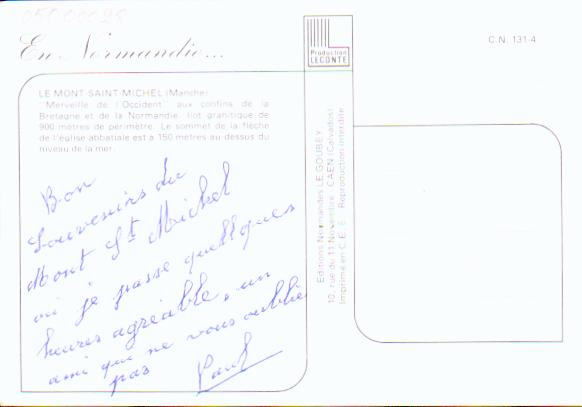 05000028
En Normandie...
Production
LECONTE
C.N. 131-4
LE MONT-SAINT-MICHEL (Manche)
"Merveille de l'Occident" aux confins de la
Bretagne et de la Normandie. Ilot granitique de
900 mètres de périmètre. Le sommet de la flèche
de l'église abbatiale est à 150 mètres au-dessus du
niveau de la mer.
Bon
Souvenirs du
Mont St Michel
où je passe quellques
heures agréable, un
ami que ne vous oublie
pas Paul
Editions Normandes LE GOUBEY
10, rue du 11 Novembre CAEN (Calvados)
Imprimé en C.E.E. Reproduction interdite